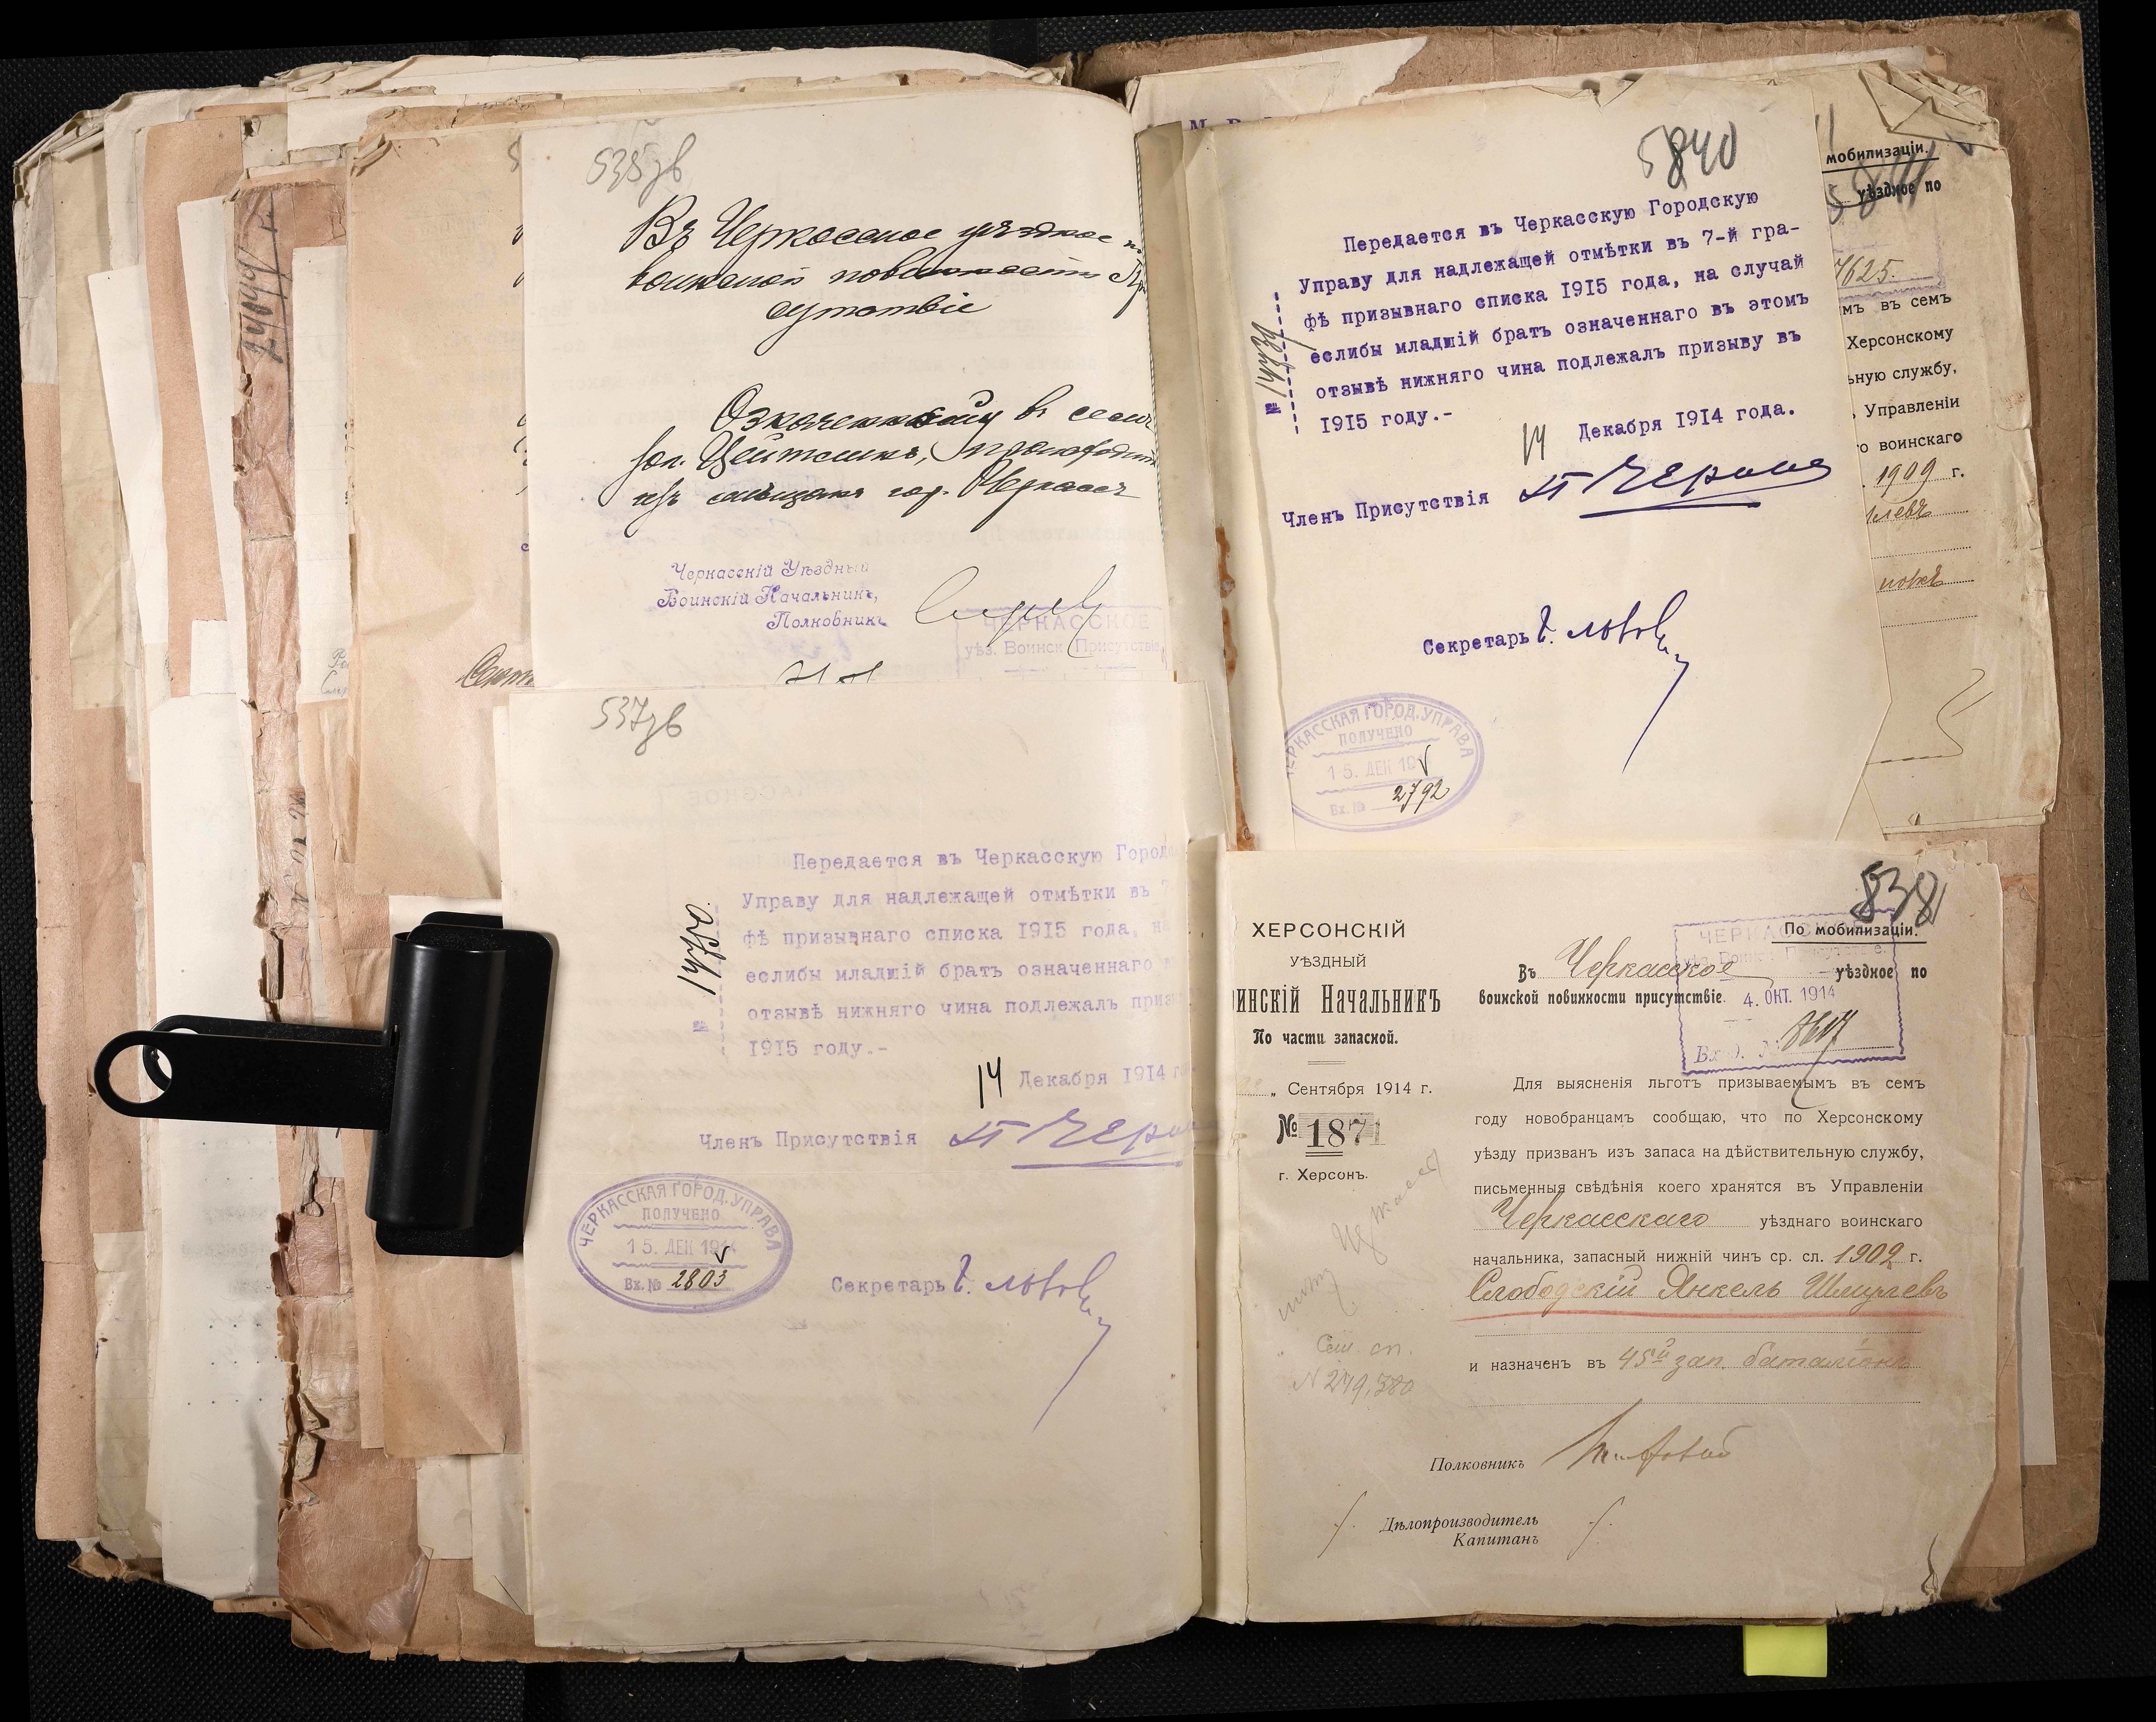 535зв
Въ Черкасское уѣздное
воинской повинности
сутствіе
Означенный въ сем
изъ мѣщанъ гор. Черкассъ
Черкасскій Уѣздный
Воинскій Начальникъ,
Полковникъ
ЧЕРКАССКОЕ
уѣз. Воинск. Присутствіе
537зв
Передается въ Черкасскую Город
Управу для надлежащей отмѣтки въ 7
фѣ призывнаго списка 1915 года, на
еслибы младшій братъ означеннаго
отзывѣ нижняго чина подлежалъ приз
1915 году.-
№ 14750.
14 Декабря 1914 г
Членъ Присутствія
ЧЕРКАССКАЯ ГОРОД. УПРАВА
ПОЛУЧЕНО
15. ДЕК 1914
Вх. № 2803
Секретарь
5840
Передается въ Черкасскую Городскую
Управу для надлежащей отмѣтки въ 7-й гра-
фѣ призывнаго списка 1915 года, на случай
еслибы младшій братъ означеннаго въ этомъ
отзывѣ нижняго чина подлежалъ призыву въ
1915 году.-
№
14 Декабря 1914 года.
Членъ Присутствія
Секретарь
ЧЕРКАССКАЯ ГОРОД. УПРАВА
ПОЛУЧЕНО
15. ДЕК 191
Вх. № 2792
мобилизаціи.
уѣздное по
7625.
мъ въ семъ
Херсонскому
ьную службу,
Управленіи
го воинскаго
1909 г.
538
ХЕРСОНСКІЙ
УѢЗДНЫЙ
ИНСКІЙ НАЧАЛЬНИКЪ
По части запасной.
„ Сентября 1914 г.
№ 1871
г. Херсонъ.
Сем. сп.
N 279,380
По мобилизаціи.
Въ Черкасское уѣздное по
воинской повинности присутствіе.
4. ОКТ. 1914
Для выясненія льготъ призываемымъ въ семъ
году новобранцамъ сообщаю, что по Херсонскому
уѣзду призванъ изъ запаса на дѣйствительную службу,
письменныя свѣдѣнія коего хранятся въ Управленіи
Черкасскаго уѣзднаго воинскаго
начальника, запасный нижній чинъ ср. сл. 1902 г.
Слободскій Янкель Шмулевъ
и назначенъ въ 45й зап. баталіонъ
Полковникъ
Дѣлопроизводитель
Капитанъ